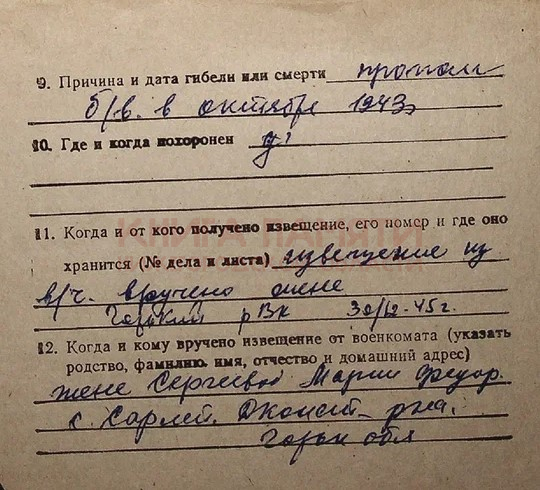 9. Причина и дата гибели или смерти пропал
б/в. в октябре 1943г
10. Где и когда похоронен
КНИГА ПАМЯТИ
11. Когда и от кого получено извещение, его номер и где оно
хранится (№ дела и листа) извещение из
в/ч. вручено жене
рВк 30/12-45г.
12. Когда и кому вручено извещение от военкомата (указать
родство, фамилию, имя, отчество и домашний адрес)
жене Сергеевой Марии Федор.
с. Сарлей. Дконст-рна.
Горьк обл